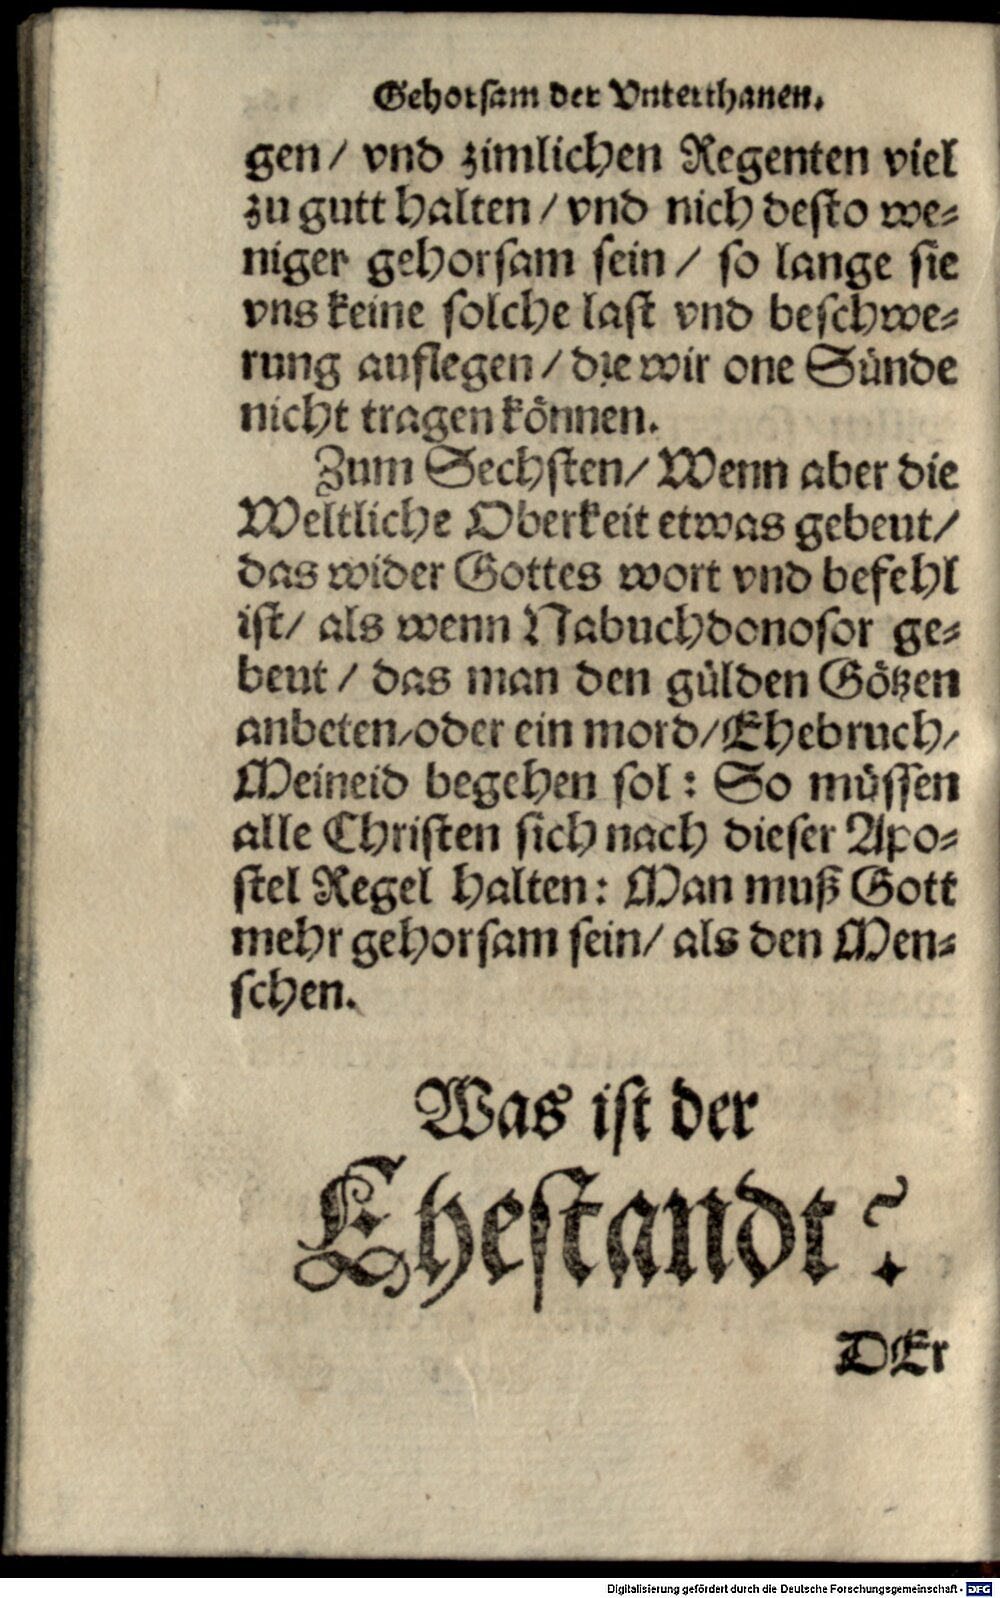 Gehorsam der Vnterthanen.
gen / vnd zimlichen Regenten viel
zu gutt halten / vnd nich desto we⸗
niger gehorsam sein / so lange sie
vns keine solche last vnd beschwe⸗
rung auflegen / die wir one Sünde
nicht tragen können.
Zum Sechsten / Wenn aber die
Weltliche Oberkeit etwas gebeut /
das wider Gottes wort vnd befehl
ist / als wenn Nabuchdonosor ge⸗
beut / das man den gülden Götzen
anbeten / oder ein mord / Ehebruch /
Meineid begehen sol : So müssen
alle Christen sich nach dieser Apo⸗
stel Regel halten : Man muß Gott
mehr gehorsam sein / als den Men⸗
schen.
Was ist der
Ehestandt ?
DEr
Digitalisierung gefördert durch die Deutsche Forschungsgemeinschaft - DFG